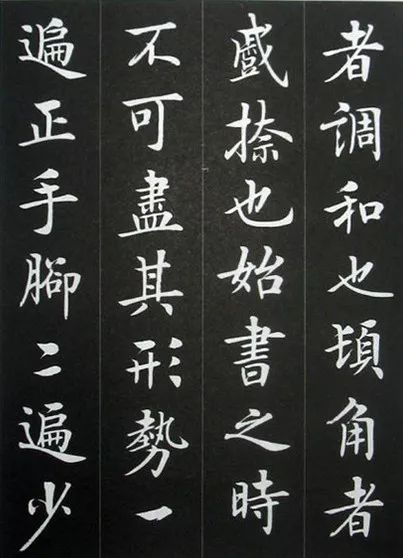 者調和也頓角者
戚捺也始書之時
不可盡其形勢一
遍正手腳二遍少